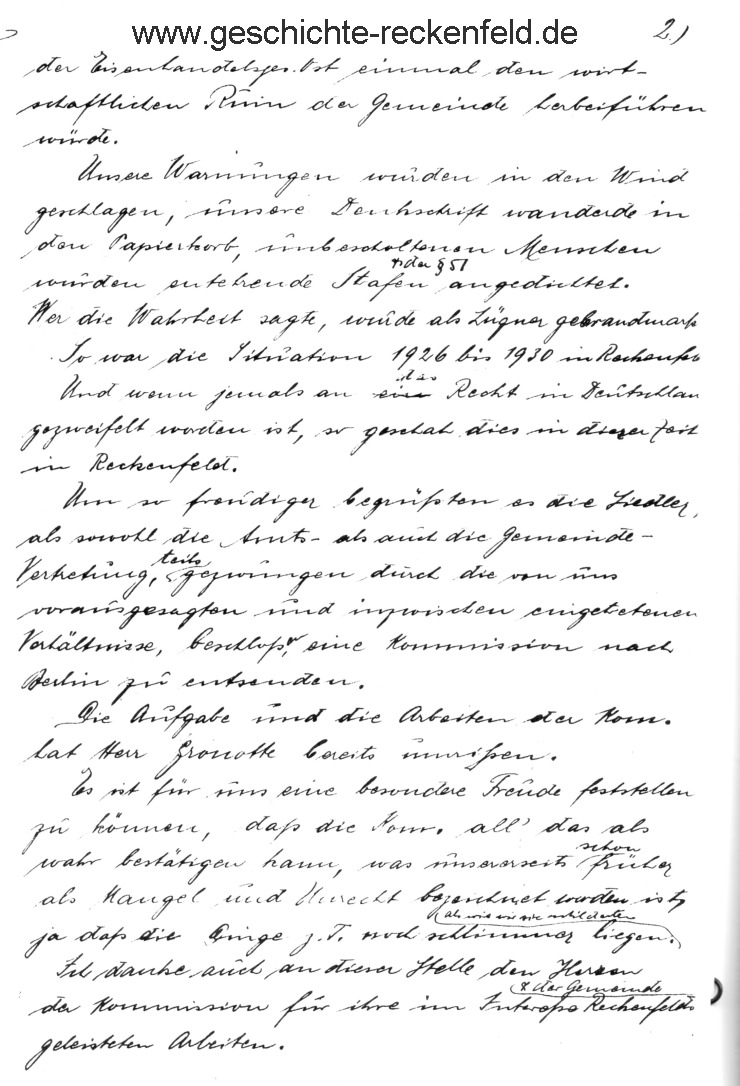 www.geschichte-reckenfeld.de
2.)
der Eisenhandelsges. Ost einmal den wirt-
schaftlichen Ruin der Gemeinde herbeiführen
würde.
Unsere Warnungen wurden in den Wind
geschlagen, unsere Denkschrift wanderde in
den Papierkorb, unbescholtenen Menschen
der § 51
wurden entehrende Stafen angedichtet.
Wer die Wahrheit sagte, wurde als Lügner gebrandmark
So war die Situation 1926 bis 1930 in Reckenfe
das
Und wenn jemals an ein Recht in Deutschlan
gezweifelt worden ist, so geschah dies in dieser Zeit
in Reckenfeld.
Um so freudiger begrüßten es die Siedler,
als sowohl die Amts- als auch die Gemeinde-
teils
Vertretung, gezwungen durch die von uns
vorausgesagten und inzwischen eingetretenen
Verhältnisse, beschloß, eine Kommission nach
Berlin zu entsenden.
Die Aufgabe und die Arbeiten der Kom.
hat Herr Gronotte bereits umrißen.
Es ist für uns eine besondere Freude feststellen
zu können, daß die Kom. all' das als
schon
wahr bestätigen kann, was unsererseits früher
als Mangel und Unrecht bezeichnet worden ist,
als wir sie schilderten
ja daß die Dinge z. T. noch schlimmer liegen.
Ich danke auch an dieser Stelle den Herren
der Gemeinde
der Kommission für ihre im Interesse Reckenfelds
geleisteten Arbeiten.